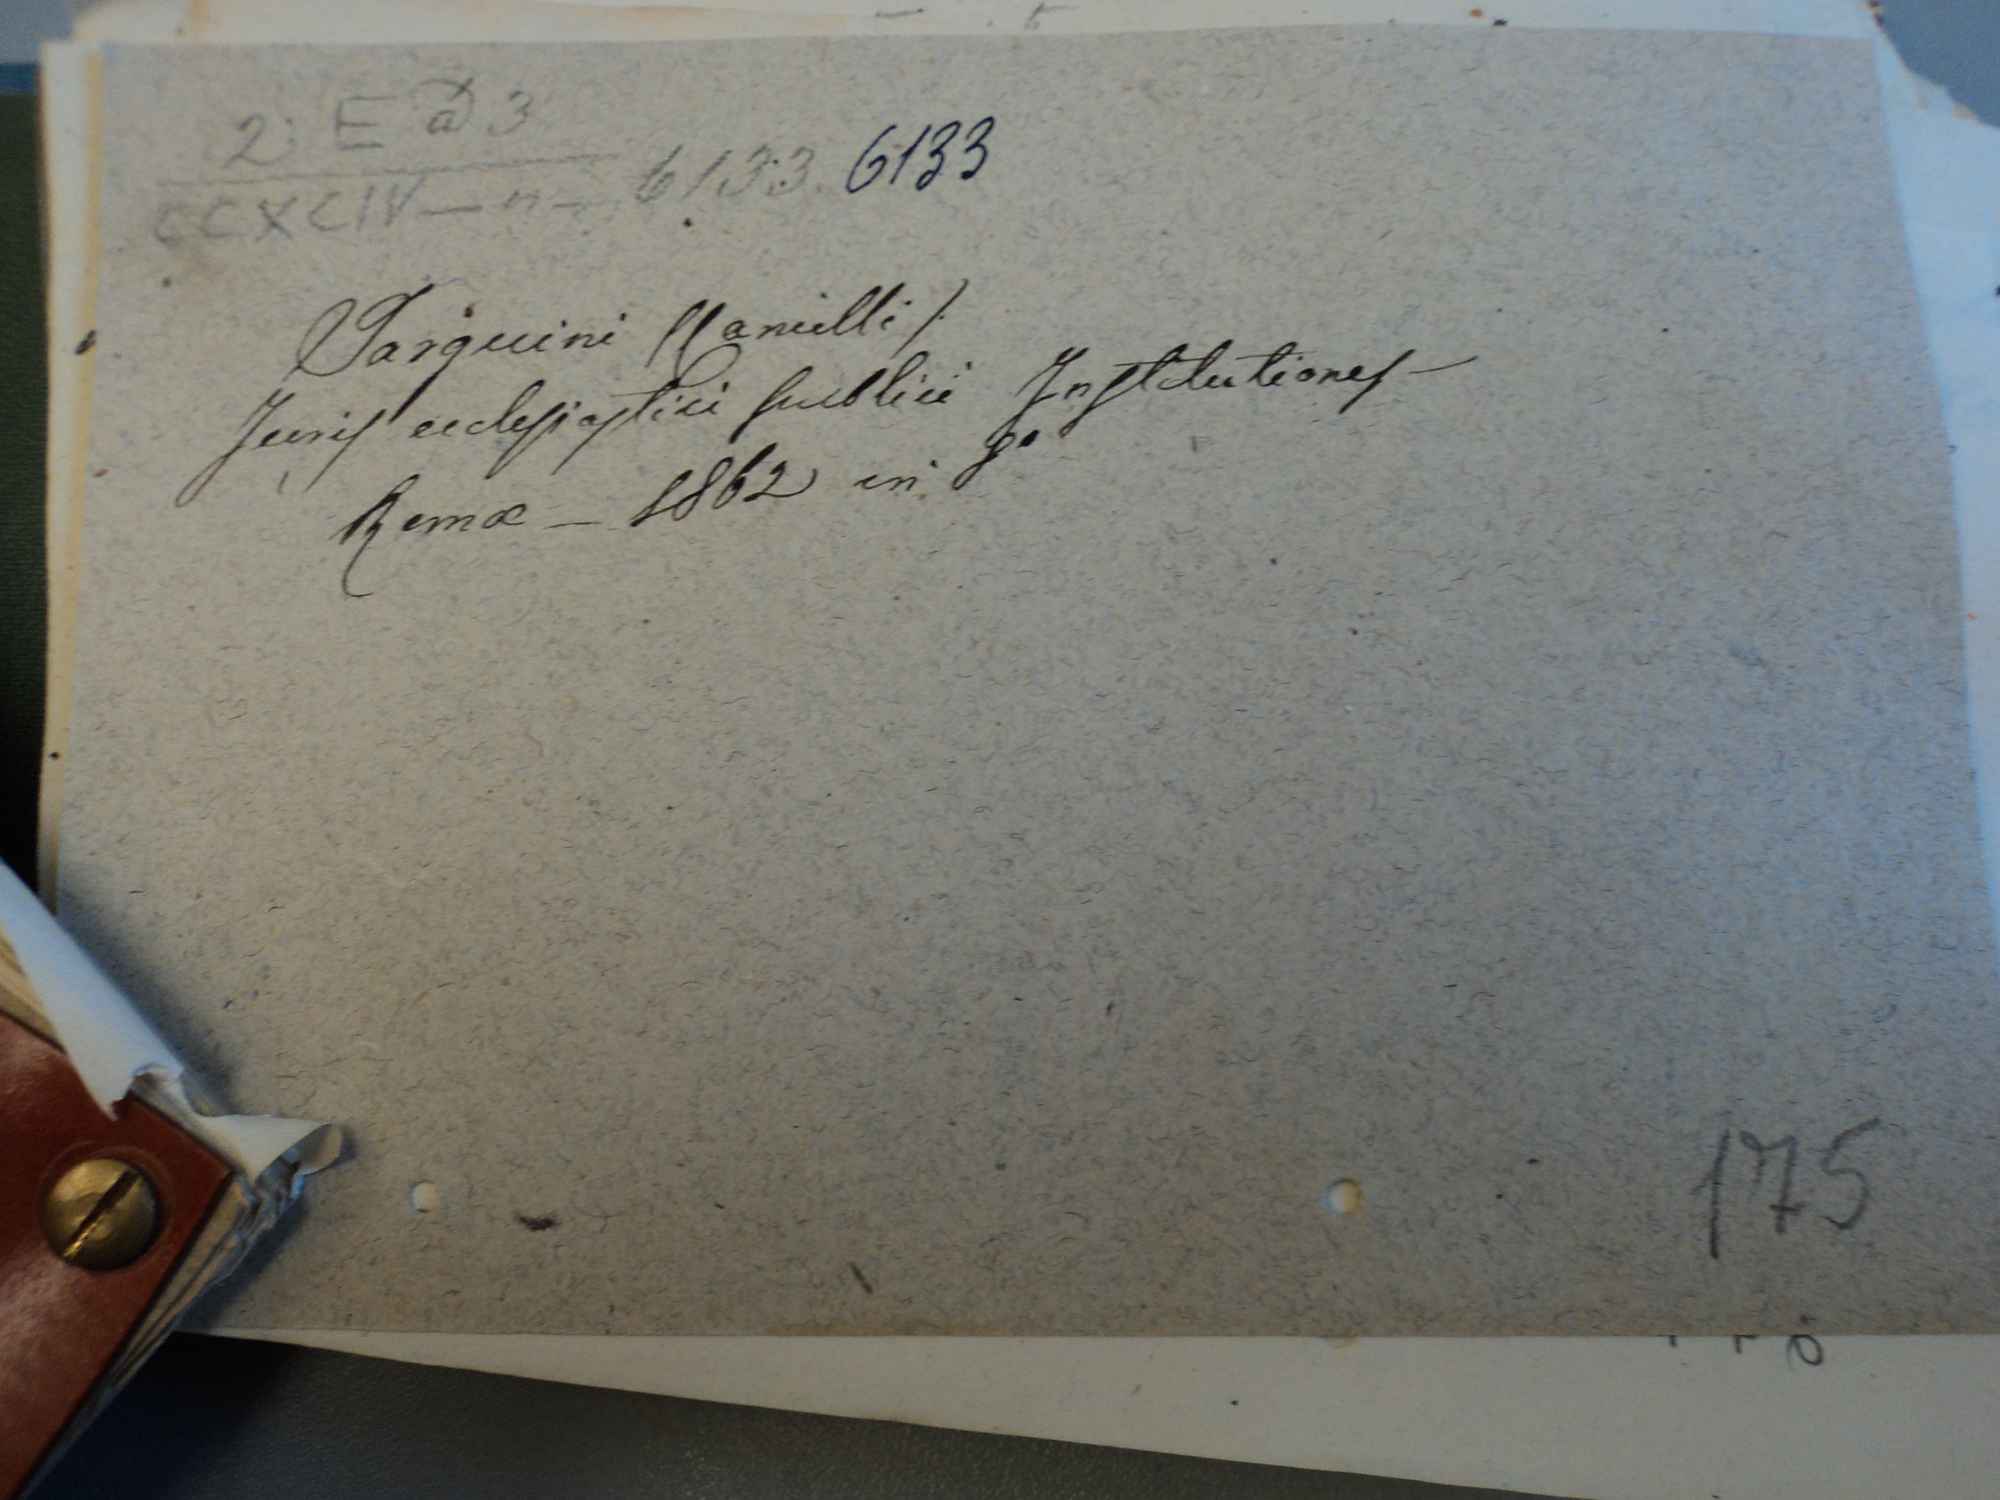 2: E a 3
CCXCIV — n — 6133. 6133
Tarquini (Camilli)
Juris ecclesiastici publici Institutiones —
Romæ — 1862 in 8º
175